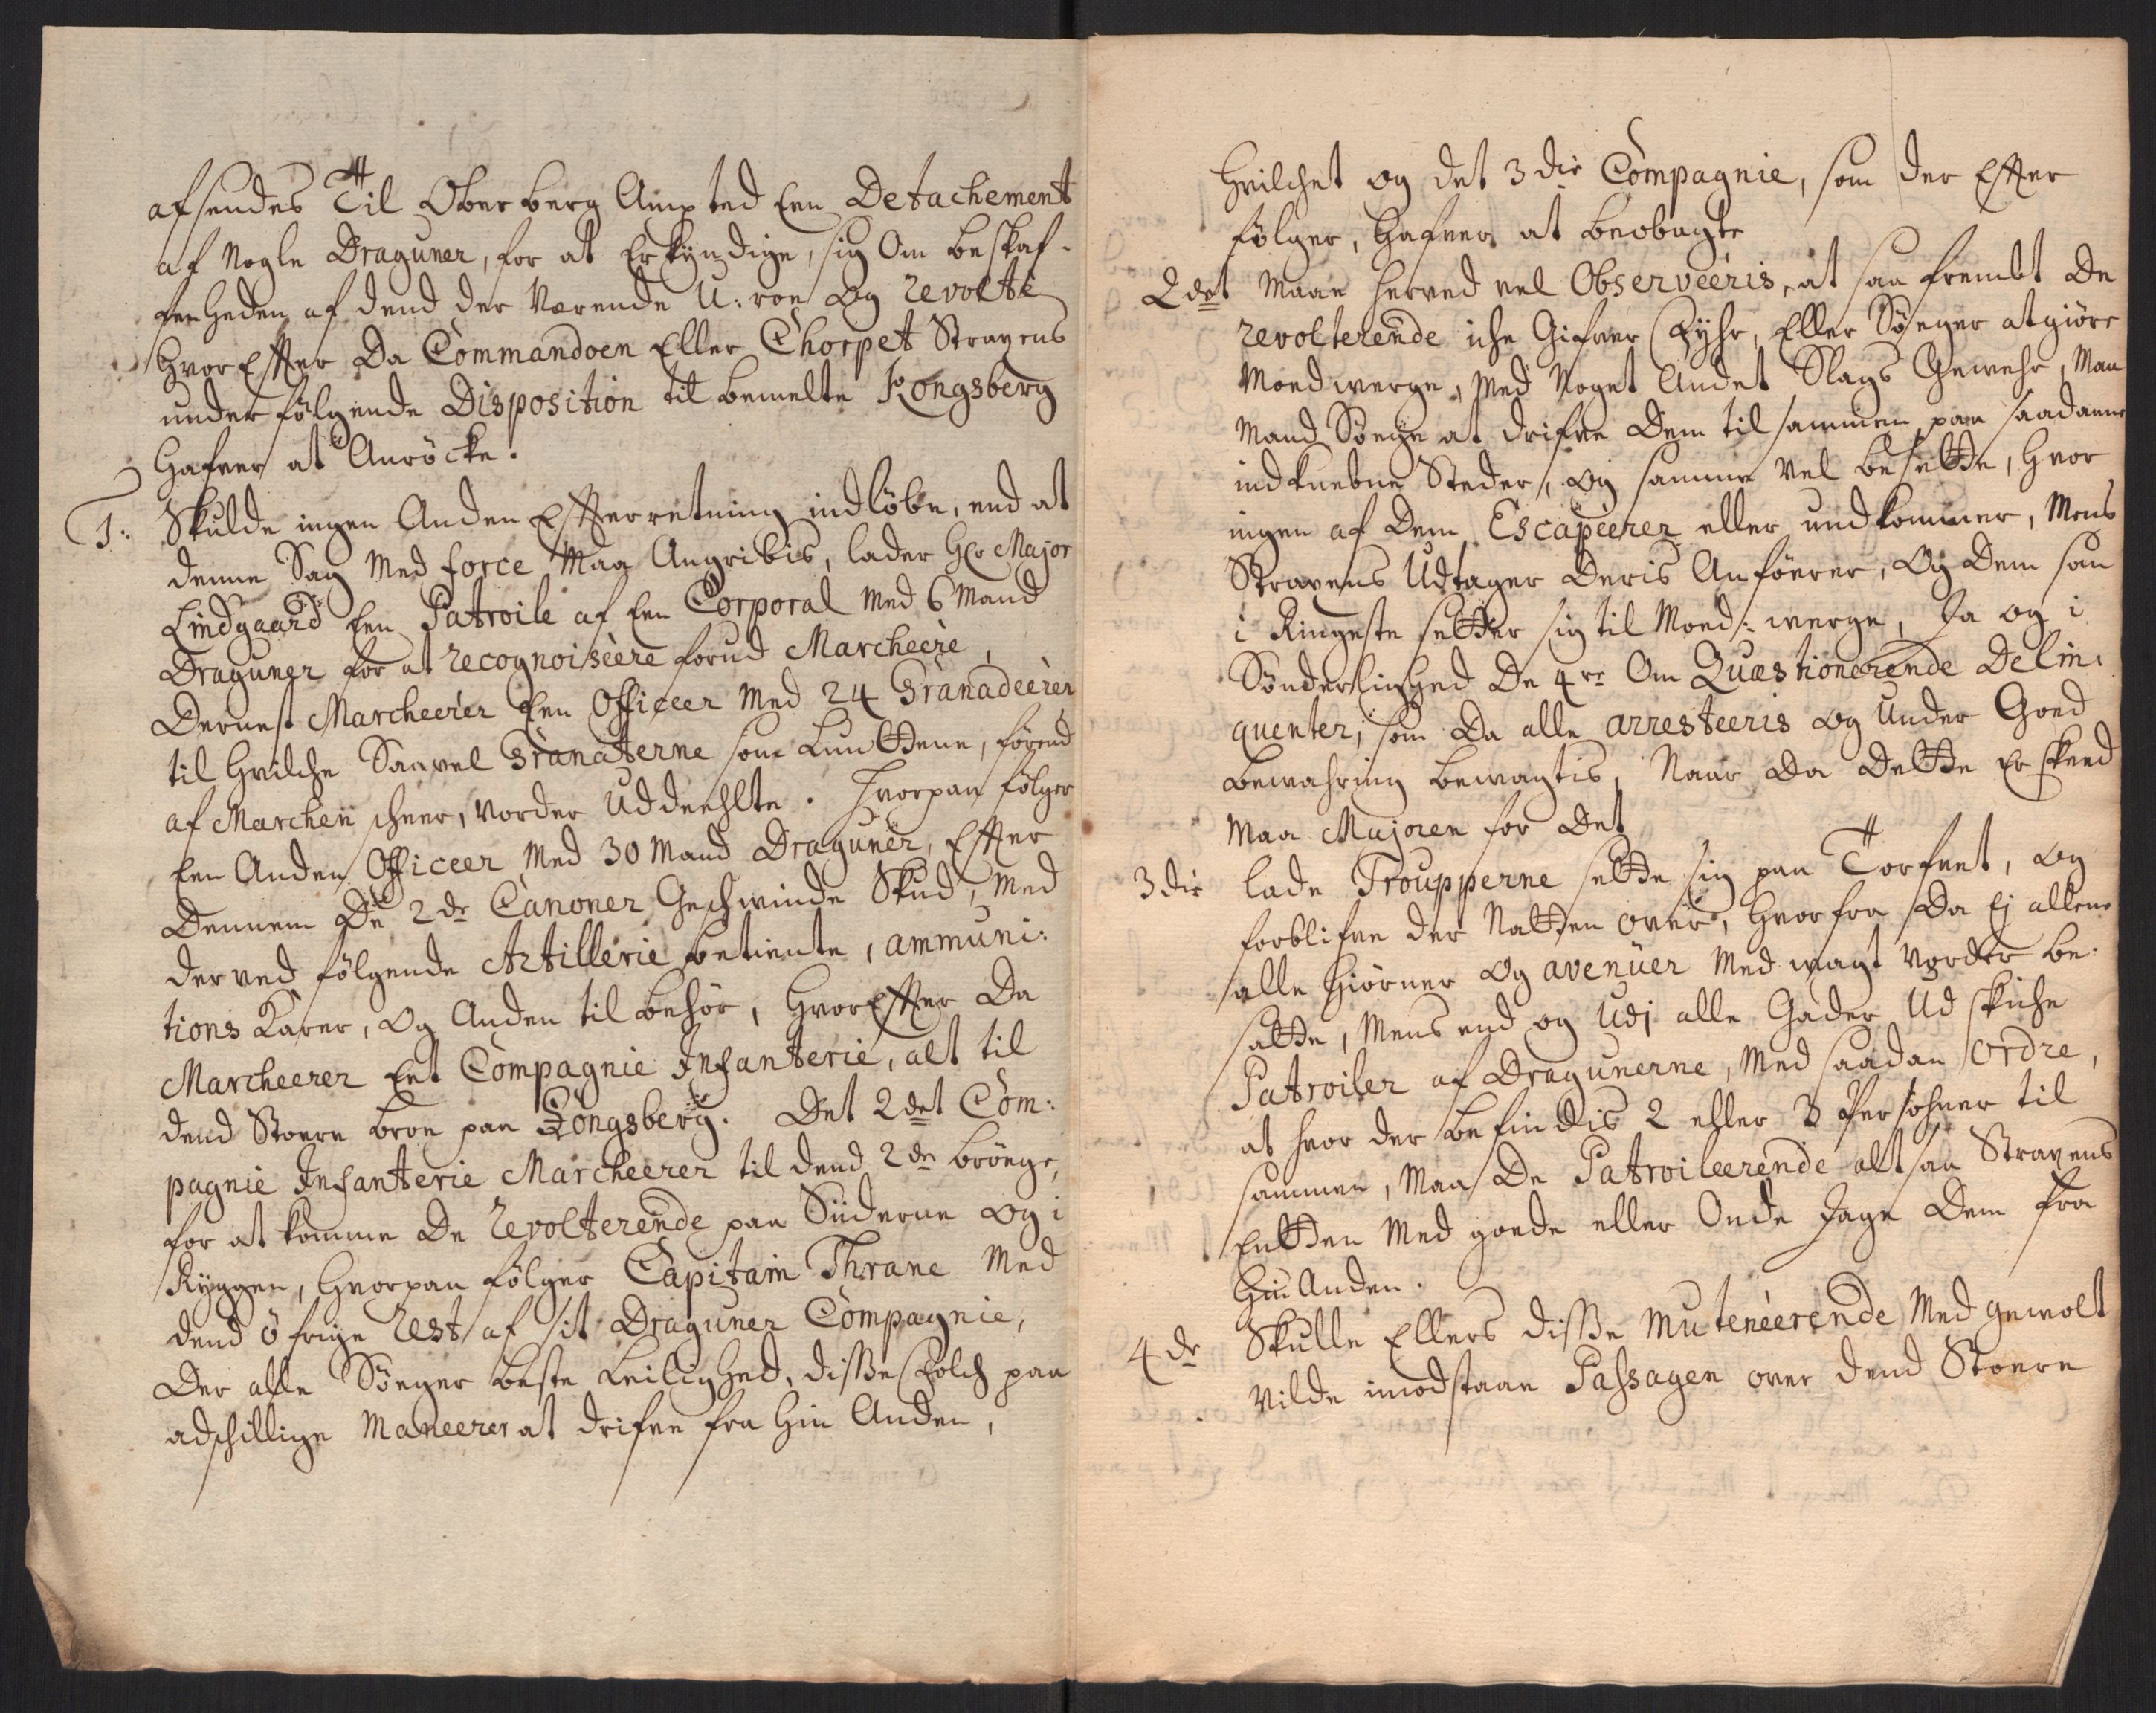 afsendes Til Oberberg Ampted Een Detachement
af Nogle Draguner, for at Erkyndige, sig Om beskaf-
fenheden af dend der Værende U:roe Og revolte
hvor Effter Da Commandoen Eller Chorpet Straxens
under følgende Disposition til bemelte Kongsberg
hafver at Anröcke.
1: Skulde ingen Anden Effterretning indløbe, end at
denne Sag Med force Maa Angribis, lader Hr Major
Lindgaard Een Patroile af Een Corporal Med 6 Mand
Draguner for at recognoiseere forud Marcheere,
Dernest Marcheerer Een Officeer Med 24 Granadeerer
til hvilche Saavel Granaterne som Luntterne, førend
af Marchen scheer, Vorder Uddeehlte. Hvorpaa følger
Een Anden Officeer Med 30 Mand Draguner, Effter
Dennem De 2de Canoner Geschwinde Skud, Med
derved følgende Artillerie betiente, ammuni:
tions Karer, Og Anden tilbehør, hvorEffter Da
Marcheerer Eet Compagnie Infanterie, alt til
dend Stoere broe paa Kongsberg. Det 2det Com:
pagnie Infanterie Marcheerer til dend 2de brøgge,
for at komme De revolterende paa Siiderne Og i
Ryggen, hvorpaa følger Capitain Thrane Med
dend öfrige Rest af sit Draguner Compagnie,
Der alle Søeger beste Leilighed, disse Folch paa
adschillige Maneerer at drifve fra hin Anden,
hvilchet og det 3die Compagnie, som der Effter
følger, hafver at beobagte
2det Maae herved vel Observeeris, at saa fremt De
revolterende iche Gifver Fyhr, Eller Søeger at giöre
Moedwerge, Med Noget Andet Slags Gewehr, Maa
Mand Søege at drifve Dem tilsammen paa saadanne
indknebne Steder, og samme Vel besette, hvor
ingen af Dem Escapeerer eller undkommer, Mens
Straxens Udtager Deris Anföerer, Og Dem som
i Ringeste setter sig til Moed:werge, Ja og i
Sønderlinghed De 4re Om Quæstionerende Delin:
quenter, som Da alle arresteeris og Under Goed
bewahring bewagtis, Naar Da Dette Er skeed
Maa Majoren for Det
3die lade Troupperne sette sig paa Torfvet, og
forblifve der Natten over, hvorfra Da Ej allene
alle hiörner Og avenüer Med wagt Vorder be:
satte, Mens end og Udj alle Gader Ud skiche
Patroiler af Dragunerne, Med saadan Ordre,
at hvor der befindis 2 eller 3 Persohner til
sammen, Maa De Patroileerende alt saa Straxens
Entten Med goede eller Onde Jage Dem fra
hin Anden.
4de Skulle Ellers disse Muteneerende Med gewolt
Vilde imodstaae Passagen over dend Stoere